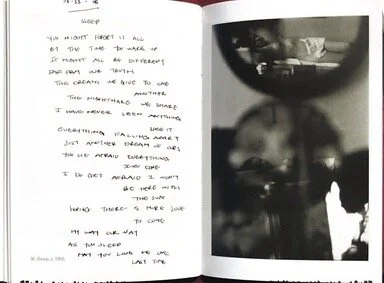 SLEEP
YOU MIGHT FORGET IT ALL
BY THE TIME YOU WAKE UP
IT MIGHT ALL BE DIFFERENT
FAR FROM OUR TRUTH
THE DREAM WE GIVE TO ONE
ANOTHER
THE NIGHTMARE WE SHARE
I HAVE NEVER SEEN ANYTHING
LIKE IT
EVERYTHING FALLING APART
JUST ANOTHER DREAM OF OURS
TO BE AFRAID EVERYTHING
I DO GET AFRAID I WON'T
BE HERE WITH
THE SUN
HOPING THERE IS MORE LOVE
TO COME
MY WAY OUR WAY
AS YOU SLEEP
MAY YOU LOVE ME ONE
LAST TIME